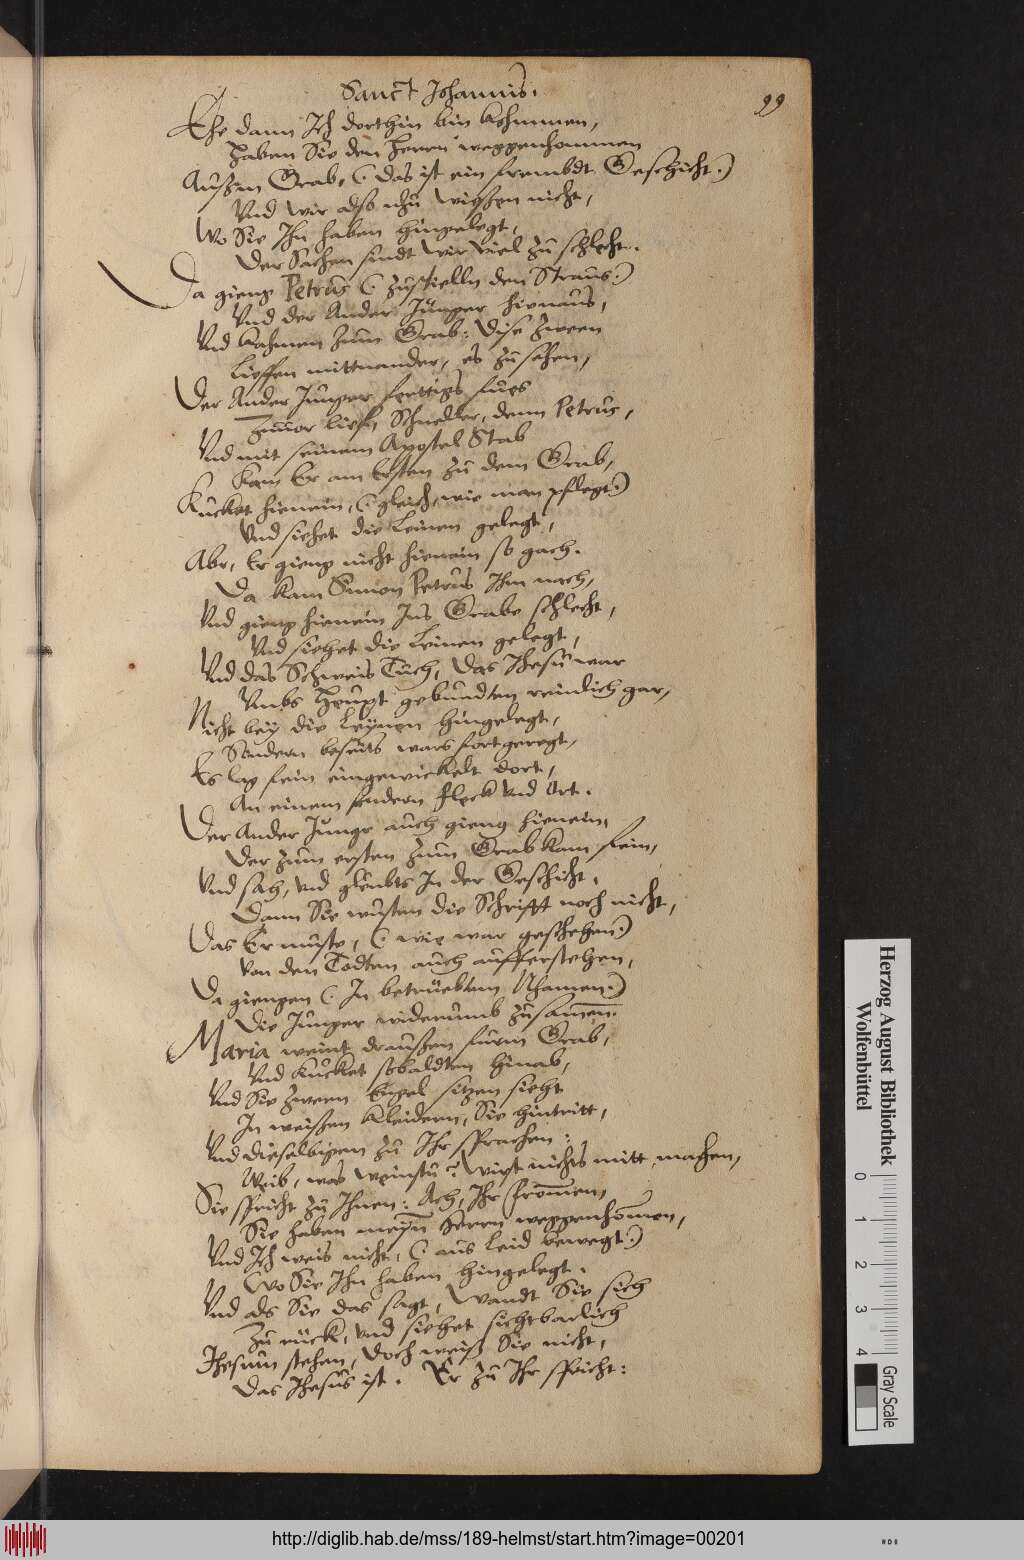 Sanct Johannis.
99
Ehe dann Ich dorthin bin kohmmen,
Haben Sie den Herrn weggenhommen
Außm Grab, (: das ist ein frembdt Geschicht :)
Und wir also nhu wißen nicht,
Wo Sie Ihn haben hingelegt,
Der Sachen sindt wir viel zu schlecht.
Da gieng Petrus (: zustielln den Straus :)
Und der Ander Junger hienaus,
Und kahmen zum Grab: dise zween
lieffen mittnander, es zu sehen,
Der Ander Junger fertigs fues
Zuuor lieff, Schneller, denn Petrus,
Und mit seinem Apostel Stab
kam Er am Ersten zu dem Grab,
Kucket hienein, (: gleich, wie man pflegt :)
Und siehet die Leinen gelegt,
Abr, Er gieng nicht hienein so gach.
Da kam Simon Petrus Ihm nach,
Und gieng hienein Ins Grabe schlecht,
Und siehet die Leinen gelegt,
Und das Schweis Tuch, das Jhesu war
Umbs Heupt gebundten reinlich gar,
Nicht bey die Leynen hingelegt,
Sondern beseits wars fort geregt,
Es lag fein eingewickelt dort,
An einem sondern fleck und Ort.
Der Ander Jungr auch gieng hienein,
Der zum ersten zum Grab kam fein,
Und sah, und gleubts In der Geschicht,
Dann Sie wusten die Schrifft noch nicht,
Das Er muste, (: wie war geschehen :)
Von den Todten auch aufferstehen,
Da giengen (: In betrüebtem Nhamen :)
Die Junger widerumb zusamen.
Maria weint draussen furm Grab,
Und kucket sobaldten hinab,
Und Sie zween Engel sitzen sieht
In weißen Kleidern, Sie hintritt,
Und dieselbigen zu Ihr sprachen:
Weib, was weinstu? wirst nichts mitt machen,
Sie spricht zu Ihnen: Ach, Ihr fromen,
Sie haben meyn Herrn weggenhomen,
Und Ich weis nicht, (: aus leid bewegt :)
Wo Sie Ihn haben hingelegt.
Und als Sie das sagt, Wandt Sie sich
Zu rück, und siehet sichtbarlich
Jhesum stehen, doch weiß Sie nicht,
Das Jhesus ist. Er zu Ihr spricht:
Herzog August Bibliothek
Wolfenbüttel
0 1 2 3 4
Gray Scale
http://diglib.hab.de/mss/189-helmst/start.htm?image=00201